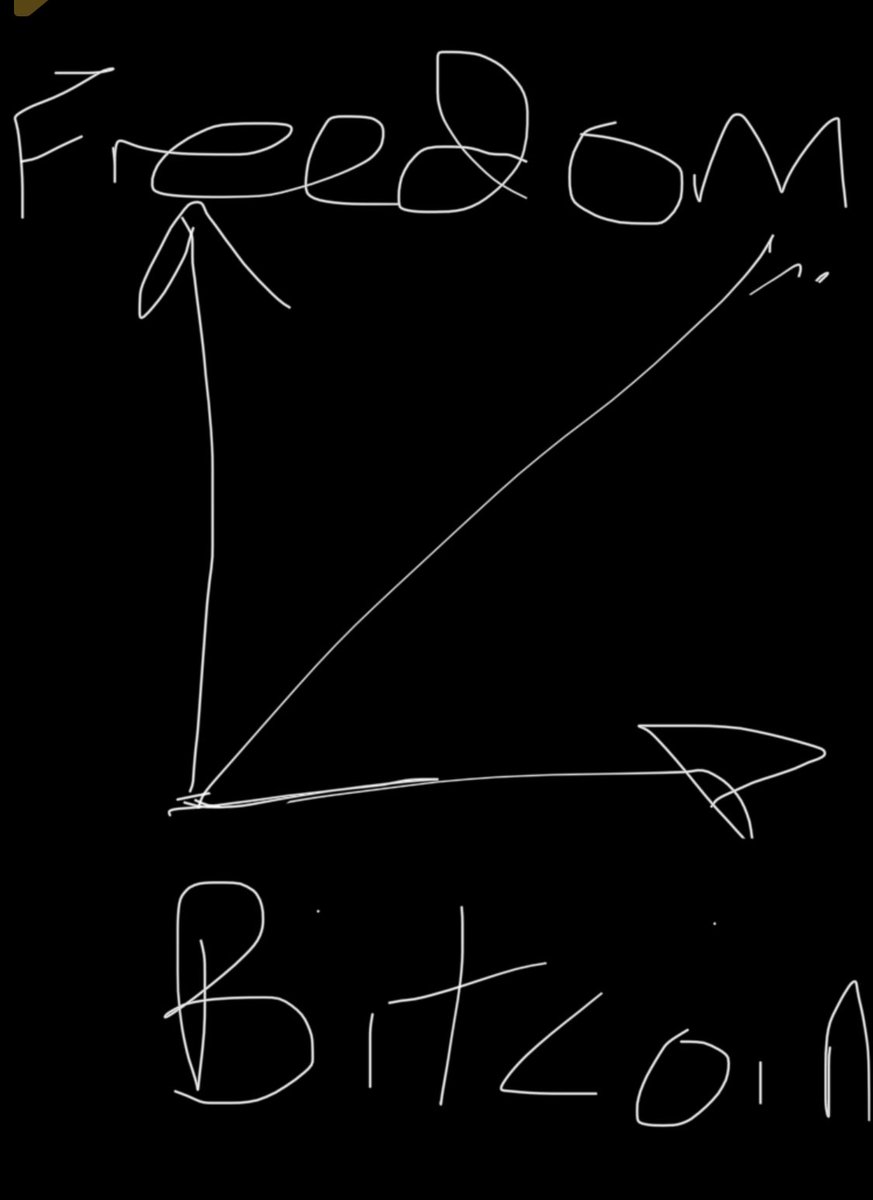 Freedom
Bitcoin